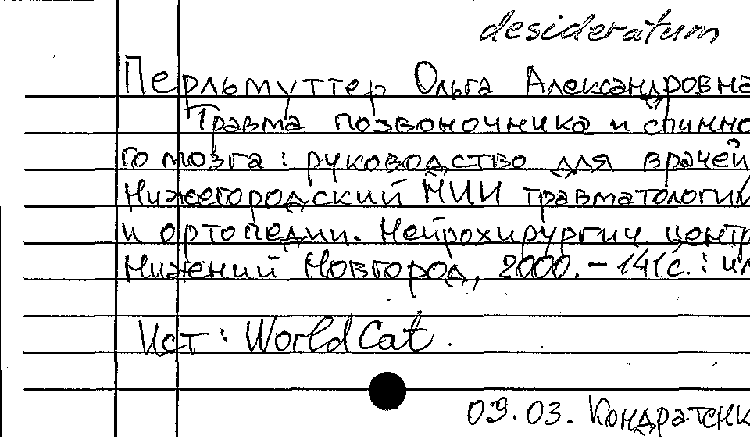 desideratum
Перльмуттер Ольга Александровна
Травма позвоночника и спинно
го мозга : руководство для врачей
Нижегородский НИИ травматологии
и ортопедии. Нейрохирургич центр
Нижний Новгород, 2000. – 141с. : ил
Ист : WorldCat.
09.03. Кондратенк